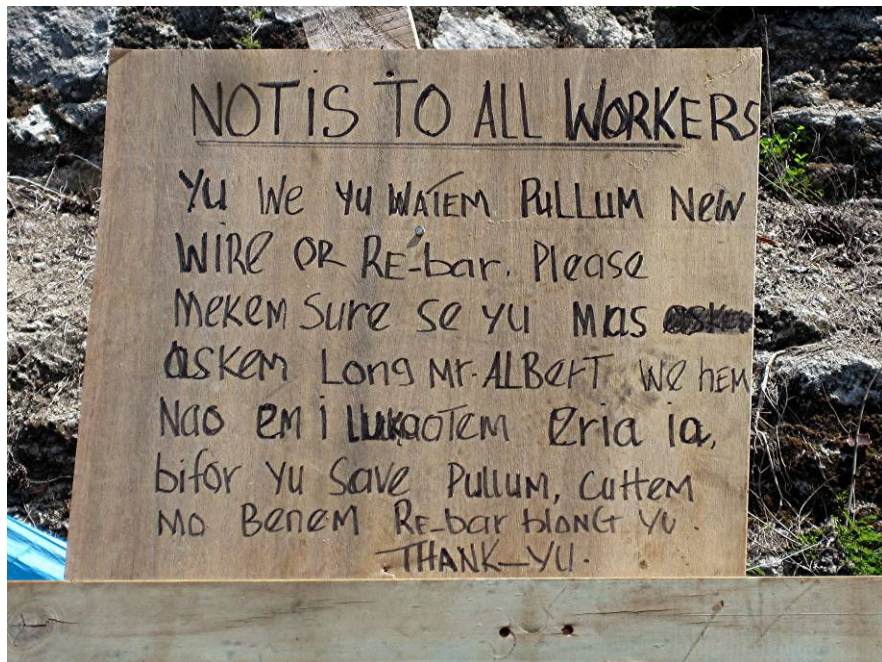 NOTIS TO ALL WORKERS
Yu We Yu WATEM PuLLUM New
WIRe OR RE-bar. Please
Mekem Sure Se yu Mas
askem Long Mr. ALBerT We hEM
Nao em i lukaoTem eria ia,
bifor Yu Save Pullum, Cuttem
Mo Benem RE-bar blong Yu.
THANK-YU.